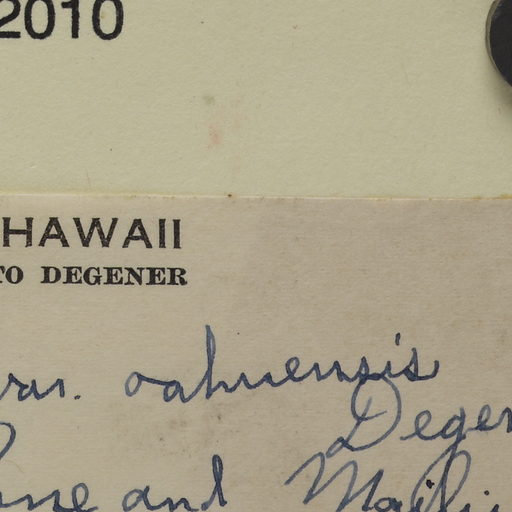 2010
HAWAII
TO DEGENER
var. oahuensis
Degen
and Maili